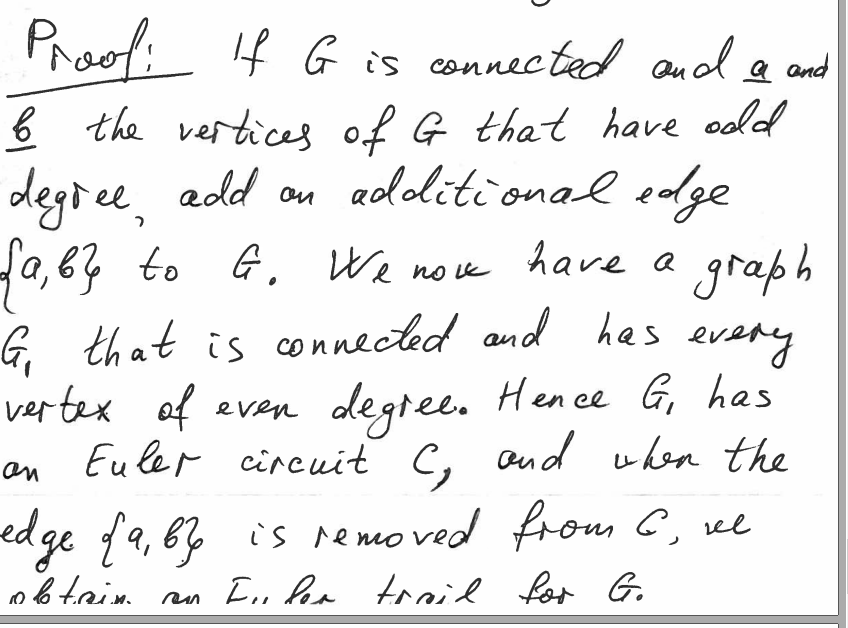 Proof: If G is connected and a and
b the vertices of G that have odd
degree, add an additional edge
{a,b} to G. We now have a graph
G₁ that is connected and has every
vertex of even degree. Hence G₁ has
an Euler circuit C, and when the
edge {a,b} is removed from C, we
obtain an Euler trail for G.